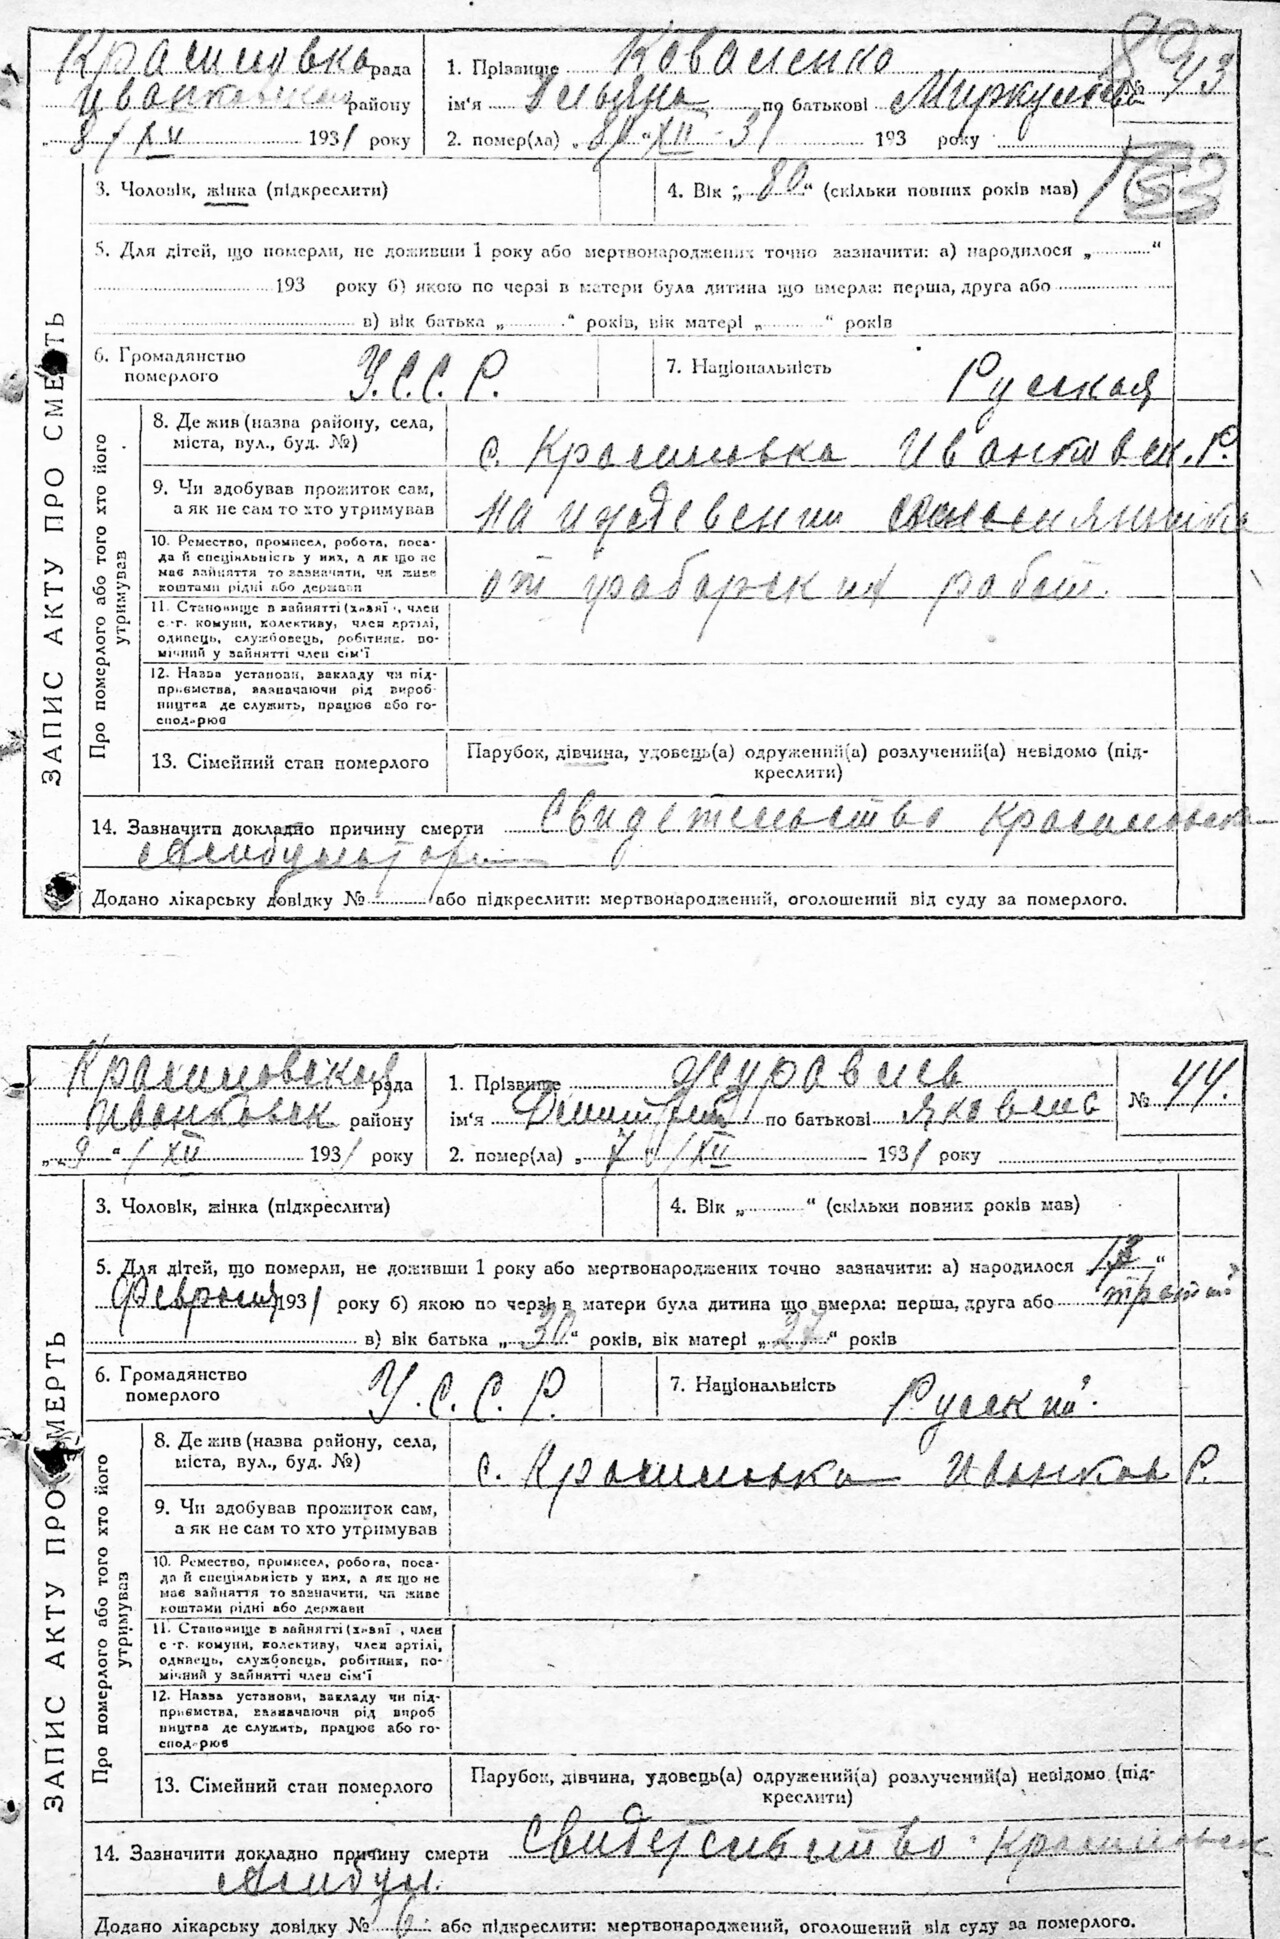 Красиловка рада
Иванковская району
„ 8 / XII 1931 року
1. Прізвище Коваленко
ім'я Ульяна по батькові
2. помер(ла) „ 8 " XII - 31 193 року
№ 43
3. Чоловік, жінка (підкреслити)
4. Вік „ 80 " (скільки повних років мав)
5. Для дітей, що померли, не доживши 1 року або мертвонароджених точно зазначити: а) народилося „ "
193 року б) якою по черзі в матери була дитина що вмерла: перша, друга або
в) вік батька „ " років, вік матері „ " років
6. Громадянство
померлого
У.С.С.Р.
7. Національність
Русская
ЗАПИС АКТУ ПРО СМЕРТЬ
Про померлого або того хто його
утримував
8. Де жив (назва району, села,
міста, вул., буд. №)
с. Красиловка Иванковск. Р.
9. Чи здобував прожиток сам,
а як не сам то хто утримував
на иждевении
10. Ремество, промисел, робота, поса-
да й спеціяльність у них, а як що не
має зайняття то зазначити, чи живе
коштами рідні або держави
от грабарских работ.
11. Становище в зайнятті (хазяї, член
с.-г. комуни, колективу, член артілі,
одинець, службовець, робітник, по-
мічний у зайнятті член сім'ї
12. Назва установи, закладу чи під-
приємства, зазначаючи рід вироб-
ництва де служить, працює або го-
сподарює
13. Сімейний стан померлого
Парубок, дівчина, удовець(а) одружений(а) розлучений(а) невідомо (під-
креслити)
14. Зазначити докладно причину смерти Свидетельство Красиловск
Амбулатории
Додано лікарську довідку № або підкреслити: мертвонароджений, оголошений від суду за померлого.
Красиловская рада
Иванковск району
„ 9 " / XII 1931 року
1. Прізвище Журавель
ім'я Дмитрий по батькові Яковлев
2. помер(ла) „ 7 " / XII 1931 року
№ 44.
3. Чоловік, жінка (підкреслити)
4. Вік „ " (скільки повних років мав)
5. Для дітей, що померли, не доживши 1 року або мертвонароджених точно зазначити: а) народилося "
Февраля 1931 року б) якою по черзі в матери була дитина що вмерла: перша, друга або третий
в) вік батька „ 30 " років, вік матері „ 27 " років
6. Громадянство
померлого
У.С.С.Р.
7. Національність
Русский.
ЗАПИС АКТУ ПРО СМЕРТЬ
Про померлого або того хто його
утримував
8. Де жив (назва району, села,
міста, вул., буд. №)
с. Красиловка Иванков Р.
9. Чи здобував прожиток сам,
а як не сам то хто утримував
10. Ремество, промисел, робота, поса-
да й спеціяльність у них, а як що не
має зайняття то зазначити, чи живе
коштами рідні або держави
11. Становище в зайнятті (хазяї, член
с.-г. комуни, колективу, член артілі,
одинець, службовець, робітник, по-
мічний у зайнятті член сім'ї
12. Назва установи, закладу чи під-
приємства, зазначаючи рід вироб
ництва де служить, працює або го-
сподарює
13. Сімейний стан померлого
Парубок, дівчина, удовець(а) одружений(а) розлучений(а) невідомо (під-
креслити)
14. Зазначити докладно причину смерти Свидетельство Красиловск
Амбул.
Додано лікарську довідку № або підкреслити: мертвонароджений, оголошений від суду за померлого.